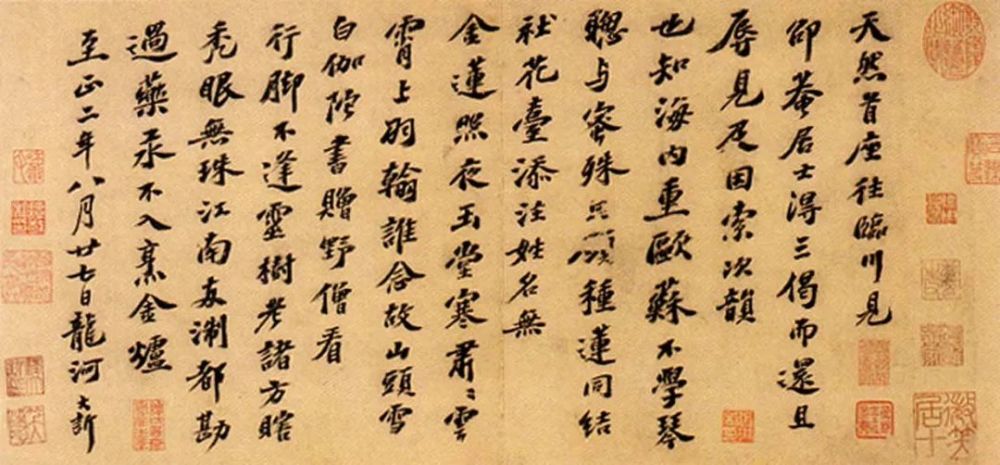 天然首座往臨川見
邵菴居士得三偈而還且
辱見及因索次韻
也知海内重歐蘇不學琴
聰与蜜殊種蓮同結
社花臺添注姓名無
金蓮照夜玉堂寒肅〻雲
霄上羽翰誰念故山頭雪
白伽陁書贈野僧看
行脚不逢靈樹老諸方瞎
禿眼無珠江南淛都勘
過藥汞不入烹金爐
至正二年八月廿七日龍河大訢